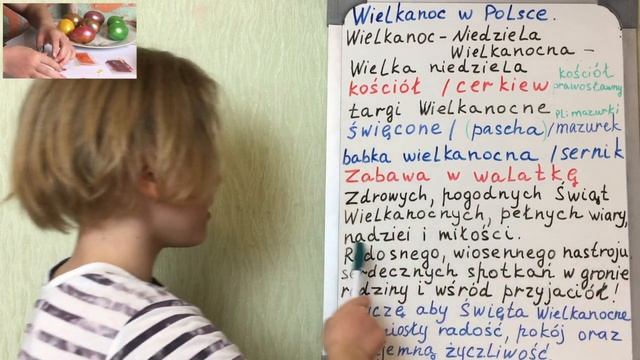 Wielkanoc w Polsce.
Wielkanoc - Niedziela
Wielkanocna -
Wielka niedziela
kościół / cerkiew
kościół
prawosławny
targi Wielkanocne
pl: mazurki
święcone / (pascha) / mazurek
babka wielkanocna / sernik
Zabawa w walatkę
Zdrowych, pogodnych Świąt
Wielkanocnych, pełnych wiary,
nadziei i miłości.
Radosnego, wiosennego nastroju,
serdecznych spotkań w gronie
rodziny i wśród przyjaciół!
aby Święta Wielkanocne
radość, pokój oraz
życzliwość